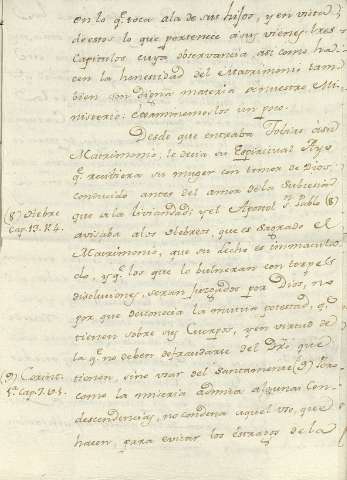 en lo q.e toca a la de sus hijos, y en vista
de estos lo que pertenece a sus vienes: tres
Capitulos, cuya observancia, asi como ha-
cen la honestidad del Matrimonio tam-
bien son digna materia a nuestro Mi-
nisterio: Examinemoslos un poco.
Desde que entraba Tobias a su
Matrimonio, le decia su Espiritual Ayo
q.e recibiera su muger con temor de Dios,
conducido antes del amor de la Subcesion
que a la liviandad: y el Apostol S. Pablo (8)
avisaba a los Hebreos, que es Sagrado el
Matrimonio, que su lecho es inmacula-
do, y q.e los que lo bulneran con torpes
disoluciones, seran juzgados por Dios, no
por que desconocia la mutua potestad, q.e
tienen sobre sus Cuerpos, y en virtud de
la q.e no deben defraudarse del Dro que
tienen, sino usar del santamente (9) Por
como la miseria admita algunas Con-
descendencias, no condena aquel uso, que
hacen, para evitar los estragos de la
(8) Hebre
Cap. 13. V. 4.
(9) Corint.
1.a Cap. 7. v. 5.